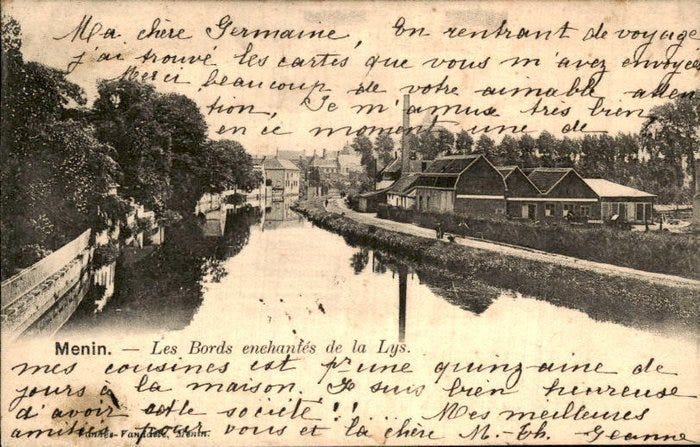 Ma chère Germaine, En rentrant de voyage
j'ai trouvé les cartes que vous m'avez envoyées
Merci beaucoup de votre aimable atten
tion, Je m'amuse très bien
en ce moment une de
Menin. — Les Bords enchantés de la Lys.
mes cousines est pr une quinzaine de
jours à la maison. Je suis bien heureuse
d'avoir cette société!! .... Mes meilleures
amitiés pour vous et la chère M.-Th. Jeanne
Menin.